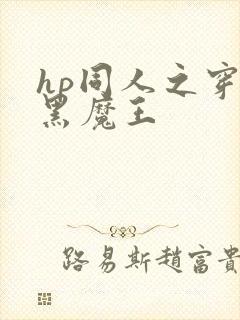 hp同人之穿
黑魔王
路易斯趙富貴